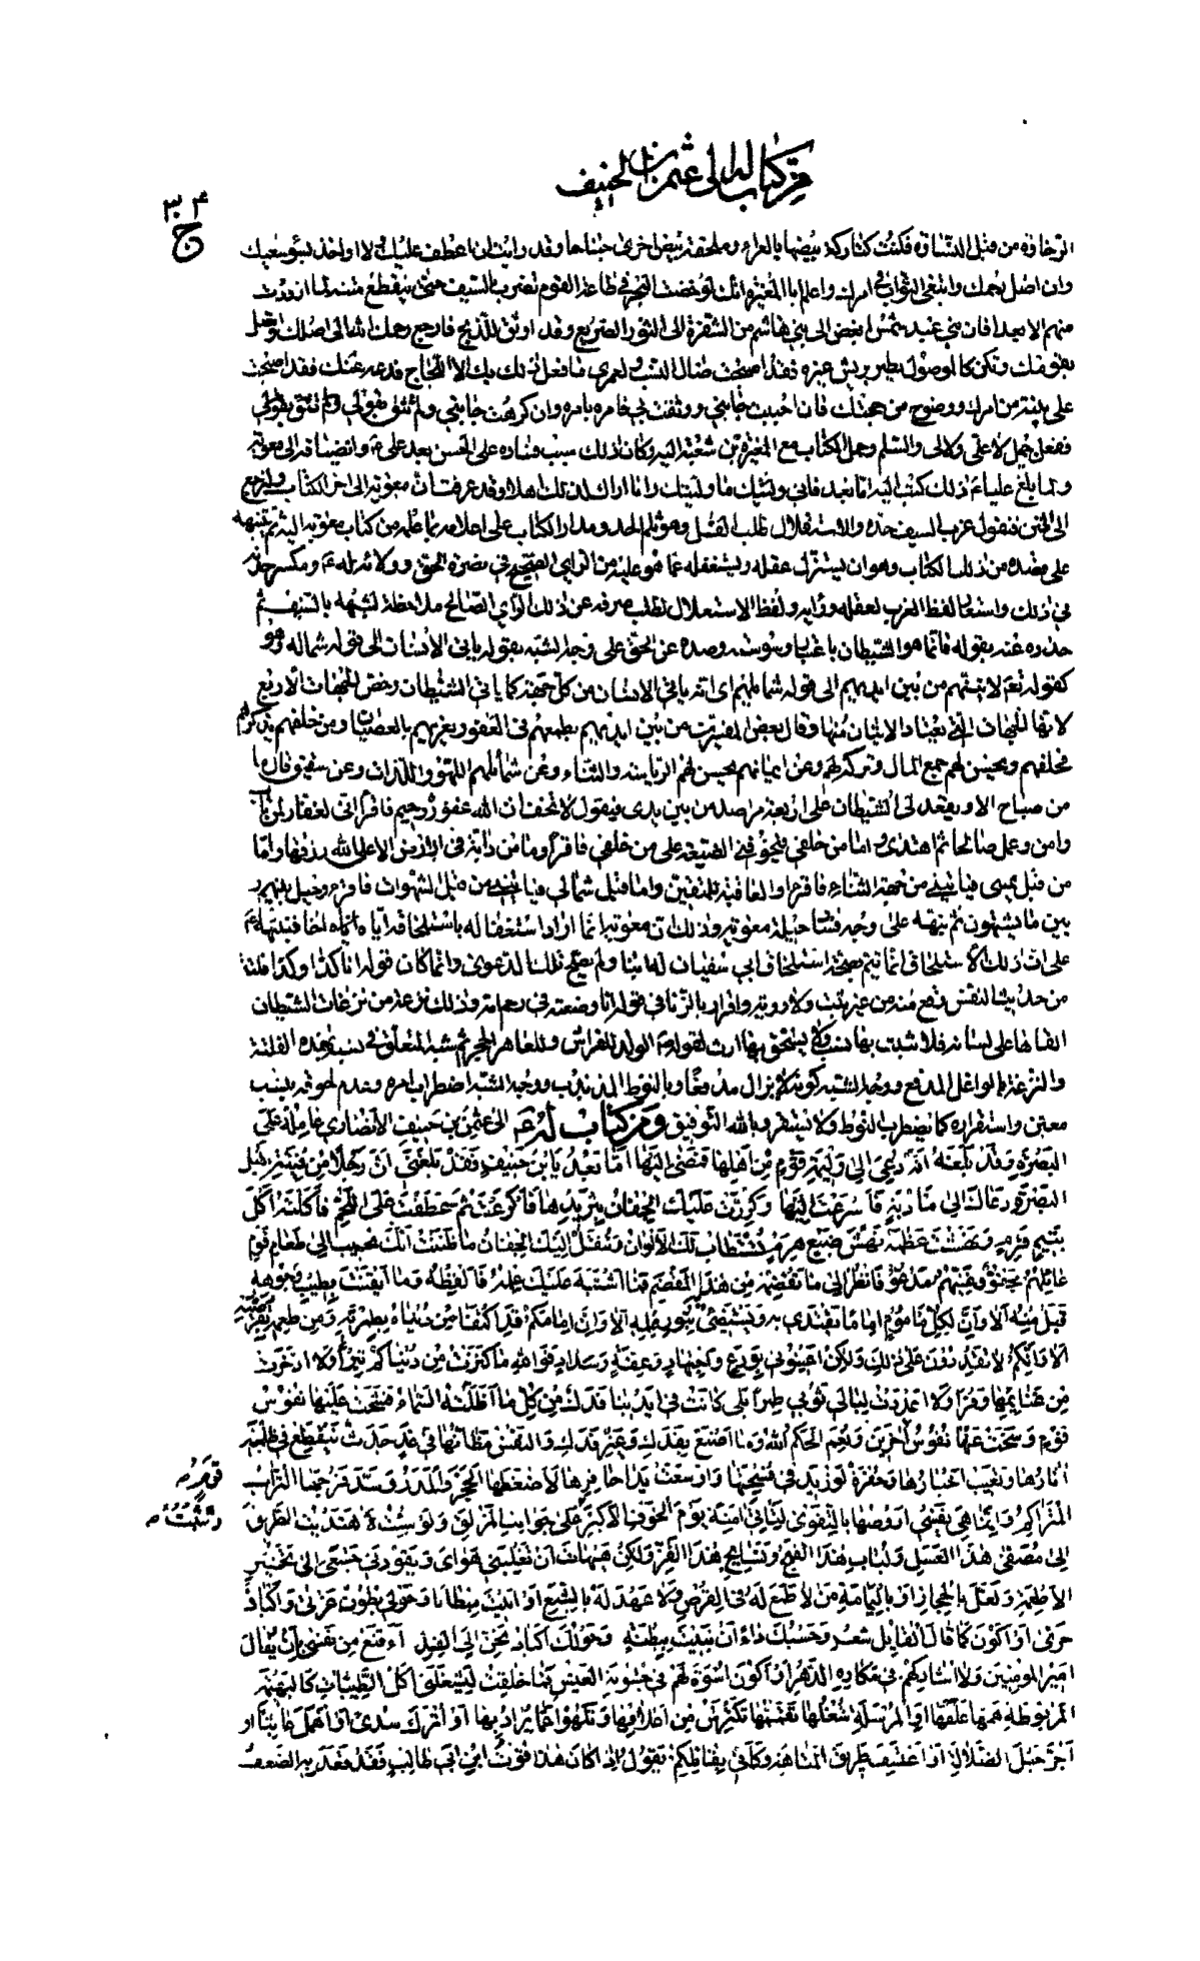 من كتاب له الى عثمان بن الحنيف
٣٠٤
ج
الرخاوة من قبل النساء فكنت كتاركة بيضها بالعراء وملحفة بيض اخرى جناحا وقد رايت ان اعطف عليك ولا اواخذ بسوء سعيك
وان اصل رحمك وابتغى الثواب في امرك واعلم يا ابا المغيرة انك لو خضت البحر في طاعة القوم تضرب بالسيف حتى ينقطع متنه لما ازددت
منهم الا بعدا فان بني عبد شمس ابغض الى بني هاشم من الشفرة الى الثور الصريع وقد اوثق للذبح فارجع رحمك الله الى اصلك واتصل
بقومك ولا تكن كالموصول يطير بريش غيره فقد اصبحت ضال النسب ولعمرى ما فعل ذلك بك الا اللجاج فدعه عنك فقد اصبحت
على بينة من امرك ووضوح من حجتك فان احببت جانبي ووثقت بي فامرة بامرة وان كرهت جانبي ولم تثق بقولي
ففعل جميل لا على ولا لى والسلم وحمل الكتاب مع المغيرة بن شعبة اليه وكان ذلك سبب فساده على الحسن بعد على ع وانضيافه الى معوية
ولما بلغ عليا ع ذلك كتب اليه اما بعد فانى وليتك ما وليتك وانا اراك لذلك اهلا وقد عرفت ان معوية الى اخر الكتاب ولنرجع
الى المتن فنقول غرب السيف حده والاستفلال طلب الفل وهو ثلم الحد ومدار الكتاب على اعلامه بما علمه من كتاب معوية اليه ثم تنبيهه
على مقصده من ذلك الكتاب وهو ان يستزل عقله ويستغفله عما هو عليه من الراى الصحيح في نصرة الحق وولائه له ع ومكسر حده
في ذلك واستعار لفظ الغرب لعقله ورايه ولفظ الاستفلال لطلب صرفه عن ذلك الراى الصالح ملاحظة لشبهه بالسيف ثم
حذره عنه بقوله فانما هو الشيطان باعتبار وسوسته وصده عن الحق على وجه الشبه بقوله ياتى الانسان الى قوله شماله وهو
كقوله تعم لاتينهم من بين ايديهم الى قوله شمائلهم اى انه ياتى الانسان من كل جهة كما ياتى الشيطان وخص الجهات الاربع
لانها الجهات التي يعتاد الاتيان منها وقال بعض المفسرين من بين ايديهم يطمعهم فى العفو ويغريهم بالعصيان ومن خلفهم يذكرهم
مخلفهم ويحسن لهم جمع المال وتركه لهم وعن ايمانهم يحسن لهم الرياسة والثناء وعن شمائلهم اللهو واللذات وعن شقيق قال ما
من صباح الا ويقعد لى الشيطان على اربعة مراصد من بين يدى فيقول لا تخف ان الله غفور رحيم فاقرأ انى لغفار لمن تاب
وامن وعمل صالحا ثم اهتدى واما من خلفي فيخوفني الضيعة على من خلفى فاقرأ وما من دابة في الارض الا على الله رزقها واما
من قبل يمينى فياتينى من جهة الثناء فاقرأ والعاقبة للمتقين واما قبل شمالي فياتيني من قبل الشهوات فاقرأ وحيل بينهم و
بين ما يشتهون ثم نبهه على وجه فساد حيلة معوية وذلك ان معوية انما اراد استغفاله باستلحاقه اياه اخا فنبهه ع
على ان ذلك الاستلحاق انما يتم بصحة استلحاق ابي سفيان له ابنا ولم يصح تلك الدعوى وانما كان قوله انا كذا وكذا فلتة
من حديث النفس وقع منه من غير تثبت ولا روية واقرار بالزنا في قوله انا وضعته فى رحم امه وذلك نزغة من نزغات الشيطان
القاها على لسانه فلا يثبت بها نسب ولا يستحق بها ارث لقوله ص الولد للفراش وللعاهر الحجر ثم شبه المتعلق في نسبه بهذه الفلتة
والنزغة بالواغل المدفع ووجه الشبه كونه لا يزال مدفعا وبالنوط المذبذب ووجه الشبه اضطراب امره وعدم لحوقه بنسب
معين واستقراره كما يضطرب النوط ولا يستقر وبالله التوفيق ومن كتاب له ع الى عثمن بن حنيف الانصارى عامله على
البصرة وقد بلغه انه دعى الى وليمة قوم من اهلها فمضى اليها اما بعد يا ابن حنيف فقد بلغنى ان رجلا من فتية اهل
البصرة دعاك الى مأدبة فاسرعت اليها وكرت عليك الجفان
قرم نهش ضبع تستطاب لك الالوان وتنقل اليك الجفان وما ظننت انك تجيب الى طعام قوم
عائلهم مجفو وغنيهم مدعو فانظر الى ما تقضمه من هذا المقضم فما اشتبه عليك علمه فالفظه وما ايقنت بطيب وجوهه
فنل منه الا وان لكل ماموم اماما يقتدى به ويستضيئ بنور علمه الا وان امامكم قد اكتفى من دنياه بطمريه ومن طعمه بقرصيه
الا وانكم لا تقدرون على ذلك ولكن اعينونى بورع واجتهاد وعفة وسداد فوالله ما كنزت من دنياكم تبرا ولا ادخرت
من غنائمها وفرا ولا اعددت لبالى ثوبى طمرا بلى كانت فى ايدينا فدك من كل ما اظلته السماء فشحت عليها نفوس
قوم وسخت عنها نفوس اخرين ونعم الحكم الله وما اصنع بفدك وغير فدك والنفس مظانها في غد جدث تنقطع في ظلمته
اثارها وتغيب اخبارها وحفرة لو زيد في فسحتها واوسعت يدا حافرها لاضغطها الحجر والمدر وسد فرجها التراب
المتراكم وانما هى نفسى اروضها بالتقوى لتاتى امنة يوم الخوف الاكبر وتثبت على جوانب المزلق ولو شئت لاهتديت الطريق
الى مصفى هذا العسل ولباب هذا القمح ونسايج هذا القز ولكن هيهات ان يغلبنى هواى ويقودنى جشعى الى تخير
الاطعمة ولعل بالحجاز او باليمامة من لا طمع له فى القرص ولا عهد له بالشبع او ابيت مبطانا وحولى بطون غرثى واكباد
حرى او اكون كما قال القايل شعر وحسبك داء ان تبيت ببطنة وحولك اكباد تحن الى القد أاقنع من نفسى بان يقال
امير المومنين ولا اشاركهم في مكاره الدهر او اكون اسوة لهم في جشوبة العيش فما خلقت ليشغلنى اكل الطيبات كالبهيمة
المربوطة همها علفها او المرسلة شغلها تقممها تكترش من اعلافها وتلهو عما يراد بها او اترك سدى او اهمل عابثا او
اجر حبل الضلالة او اعتسف طريق المتاهة وكانى بقائلكم يقول اذا كان هذا قوت ابن ابى طالب فقد قعد به الضعف